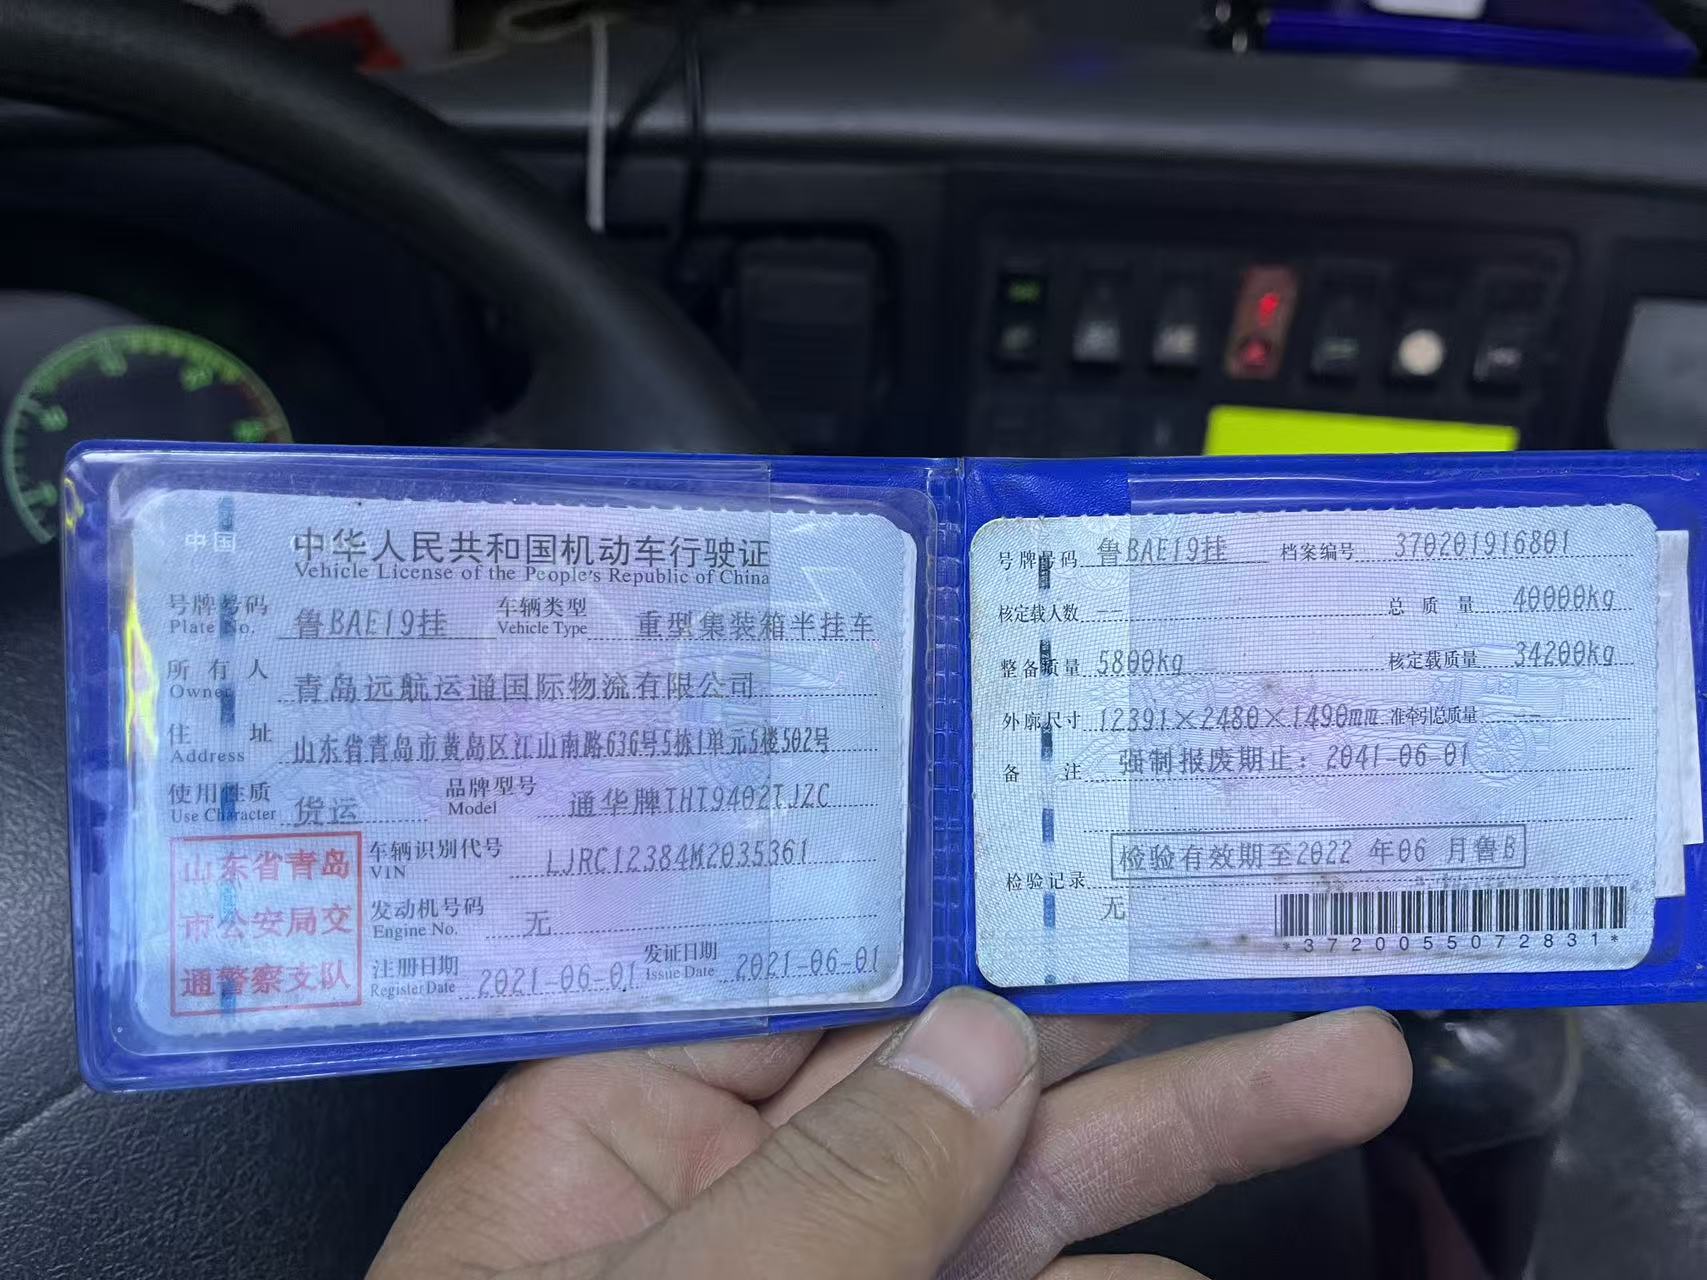 中国
中华人民共和国机动车行驶证
Vehicle License of the People's Republic of China
号牌号码 鲁BAE19挂 车辆类型 重型集装箱半挂车
Plate No. Vehicle Type
所有人 青岛远航运通国际物流有限公司
Owner
住址 山东省青岛市黄岛区江山南路636号5栋1单元5楼502号
Address
使用性质 货运 品牌型号 通华牌THT9402TJZC
Use Character Model
山东省青岛
市公安局交
通警察支队
车辆识别代号 LJRC12384M2035361
VIN
发动机号码 无
Engine No.
注册日期 2021-06-01 发证日期 2021-06-01
Register Date Issue Date
号牌号码 鲁BAE19挂 档案编号 370201916801
核定载人数 -- 总质量 40000kg
整备质量 5800kg 核定载质量 34200kg
外廓尺寸 12391×2480×1490mm 准牵引总质量 --
备注 强制报废期止：2041-06-01
检验有效期至2022 年06 月鲁B
检验记录
无
*3720055072831*